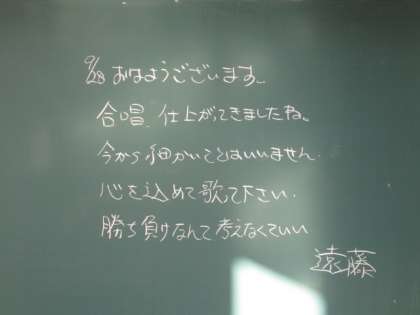 9/28 おはようございます。
合唱、仕上がってきましたね。
今から細かいことはいいません。
心を込めて歌て下さい。
勝ち負けなんて考えなくていい
遠藤